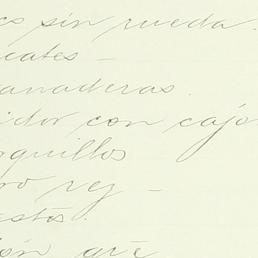 os sin rueda.
cates -
anaderas.
idor con cajo
orquillos
ro reg -
estos.
ión que